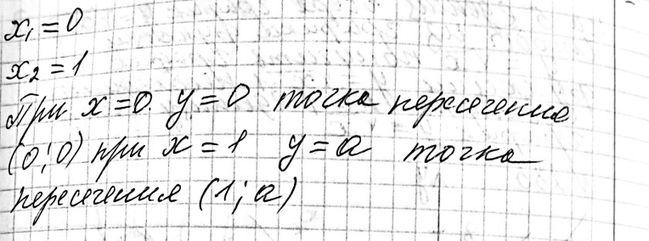 x₁ = 0
x₂ = 1
При x = 0 y = 0 точка пересечения
(0; 0) при x = 1 y = a точка
пересечения (1; a)